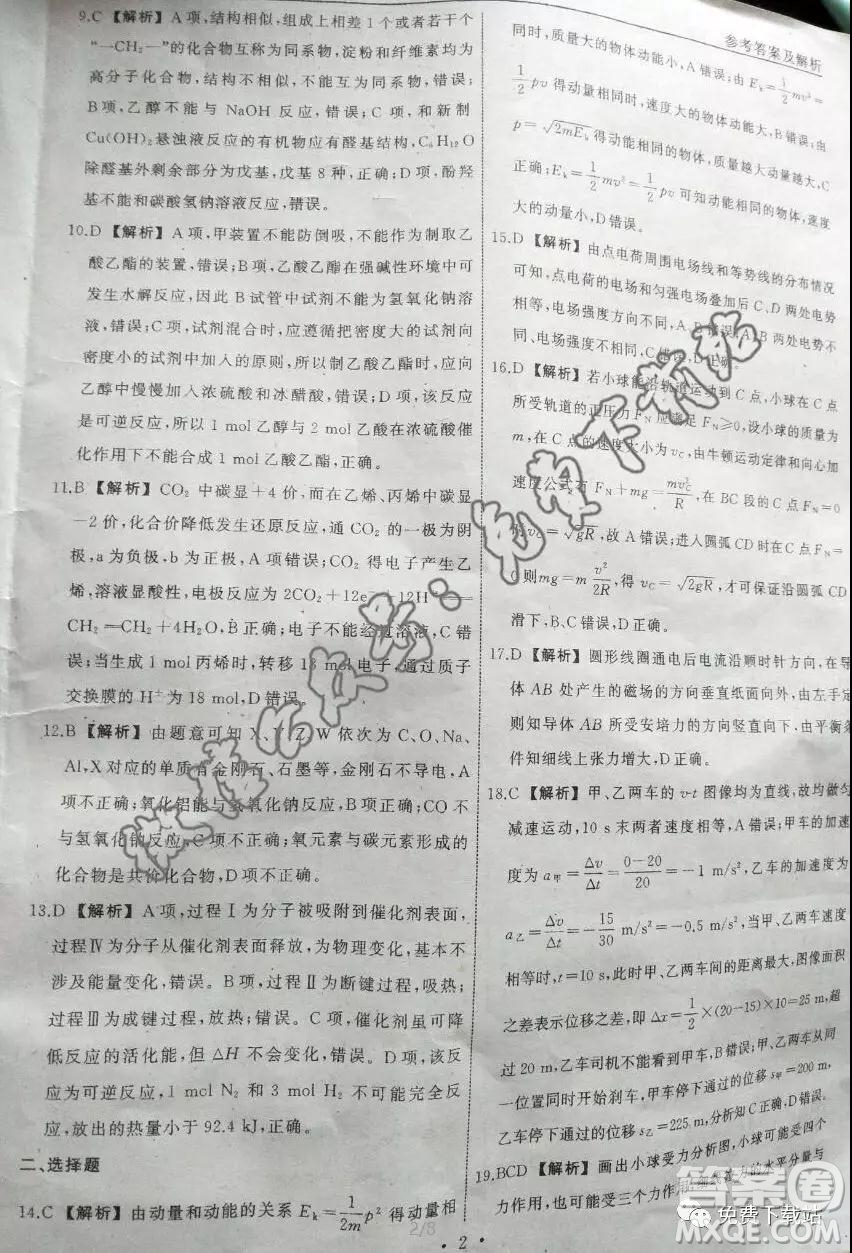 9.C 【解析】 A项,结构相似,组成上相差1个或者若干个
“—CH₂—”的化合物互称为同系物,淀粉和纤维素均为
高分子化合物,结构不相似,不能互为同系物,错误;
B项,乙醇不能与NaOH反应,错误;C项,和新制
Cu(OH)₂悬浊液反应的有机物应有醛基结构,C₆H₁₂O
除醛基外剩余部分为戊基,戊基8种,正确;D项,酚羟
基不能和碳酸氢钠溶液反应,错误。
10.D 【解析】 A项,甲装置不能防倒吸,不能作为制取乙
酸乙酯的装置,错误;B项,乙酸乙酯在强碱性环境中可
发生水解反应,因此B试管中试剂不能为氢氧化钠溶
液,错误;C项,试剂混合时,应遵循把密度大的试剂向
密度小的试剂中加入的原则,所以制乙酸乙酯时,应向
乙醇中慢慢加入浓硫酸和冰醋酸,错误;D项,该反应
是可逆反应,1 mol乙醇与2 mol乙酸在浓硫酸催
化作用下不能合成1 mol乙酸乙酯,正确。
11.B 【解析】 CO₂中碳显+4价,而在乙烯、丙烯中碳显
-2价,化合价降低发生还原反应,通CO₂的一极为阴
极,a为负极,b为正极,A项错误;CO₂得电子产生乙
烯,溶液显酸性,电极反应为2CO₂+12e⁻+12H⁺═
CH₂═CH₂+4H₂O,B正确;电子不能经过溶液,C错
误;当生成1 mol丙烯时,转移18 mol电子,通过质子
交换膜的H⁺为18 mol,D错误。
12.B 【解析】 由题意可知X、Y、Z、W依次为C、O、Na、
Al,X对应的单质有金刚石、石墨等,金刚石不导电,A
项不正确;氧化铝能与氢氧化钠反应,B正确;CO不
与氢氧化钠反应,C项不正确;氧元素与碳元素形成的
化合物是共价化合物,D项不正确。
13.D 【解析】 A项,过程Ⅰ为分子被吸附到催化剂表面,
过程Ⅳ为分子从催化剂表面释放,为物理变化,基本不
涉及能量变化,错误。B项,过程Ⅱ为断键过程,吸热;
过程Ⅲ为成键过程,放热;错误。C项,催化剂虽可降
低反应的活化能,但ΔH不会变化,错误。D项,该反
应为可逆反应,1 mol N₂和3 mol H₂不可能完全反
应,放出的热量小于92.4 kJ,正确。
二、选择题
14.C 【解析】 由动量和动能的关系Eₖ=1/2m p²得动量相
参考答案及解析
同时,质量大的物体动能小,A错误;由Eₖ=1/2mv²=
1/2pv得动量相同时,速度大的物体动能大,B错误;由
p=√2mEₖ得动能相同的物体,质量越大动量越大,C
正确;Eₖ=1/2mv²=1/2pv可知动能相同的物体,速度
大的动量小,D错误。
15.D 【解析】 由点电荷周围电场线和等势线的分布情况
可知,点电荷的电场和匀强电场叠加后C、D两处电势
相等,电场强度方向不同,A、B错误;A、B两处电势不
同、电场强度不相同,C错误、D正确。
16.D 【解析】 若小球能沿轨道运动到C点,小球在C点
所受轨道的正压力F_N应满足F_N≥0,设小球的质量为
m,在C点的速度大小为v_C,由牛顿运动定律和向心加
速度公式有F_N+mg=mv_C²/R,在BC段的C点F_N=0
则v_C=√gR,故A错误;进入圆弧CD时在C点F_N=
0则mg=m v²/2R,得v_C=√2gR,才可保证沿圆弧CD
滑下,B、C错误,D正确。
17.D 【解析】 圆形线圈通电后电流沿顺时针方向,在导
体AB处产生的磁场方向垂直纸面向外,由左手定
则知导体AB所受安培力的方向竖直向下,由平衡条
件知细线上张力增大,D正确。
18.C 【解析】 甲、乙两车的v-t图像均为直线,故均做匀
减速运动,10 s末两者速度相等,A错误;甲车的加速
度为a甲=Δv/Δt=0-20/20=-1 m/s²,乙车的加速度为
a乙=Δv/Δt=-15/30 m/s²=-0.5 m/s²,当甲、乙两车速度
相等时,t=10 s,此时甲、乙两车间的距离最大,图像面积
之差表示位移之差,即Δx=1/2×(20-15)×10=25 m,超
过20 m,乙车司机不能看到甲车,B错误;甲、乙两车从同
一位置同时开始刹车,甲车停下通过的位移s甲=200 m,
乙车停下通过的位移s乙=225 m,分析知C正确,D错误。
19.BCD 【解析】 画出小球受力分析图,小球可能受四个
力作用,也可能受三个力作用,弹力的水平分量与
2/8
· 2 ·
微信公众号:免费下载站
答案圈
MXQE.COM
免费下载站